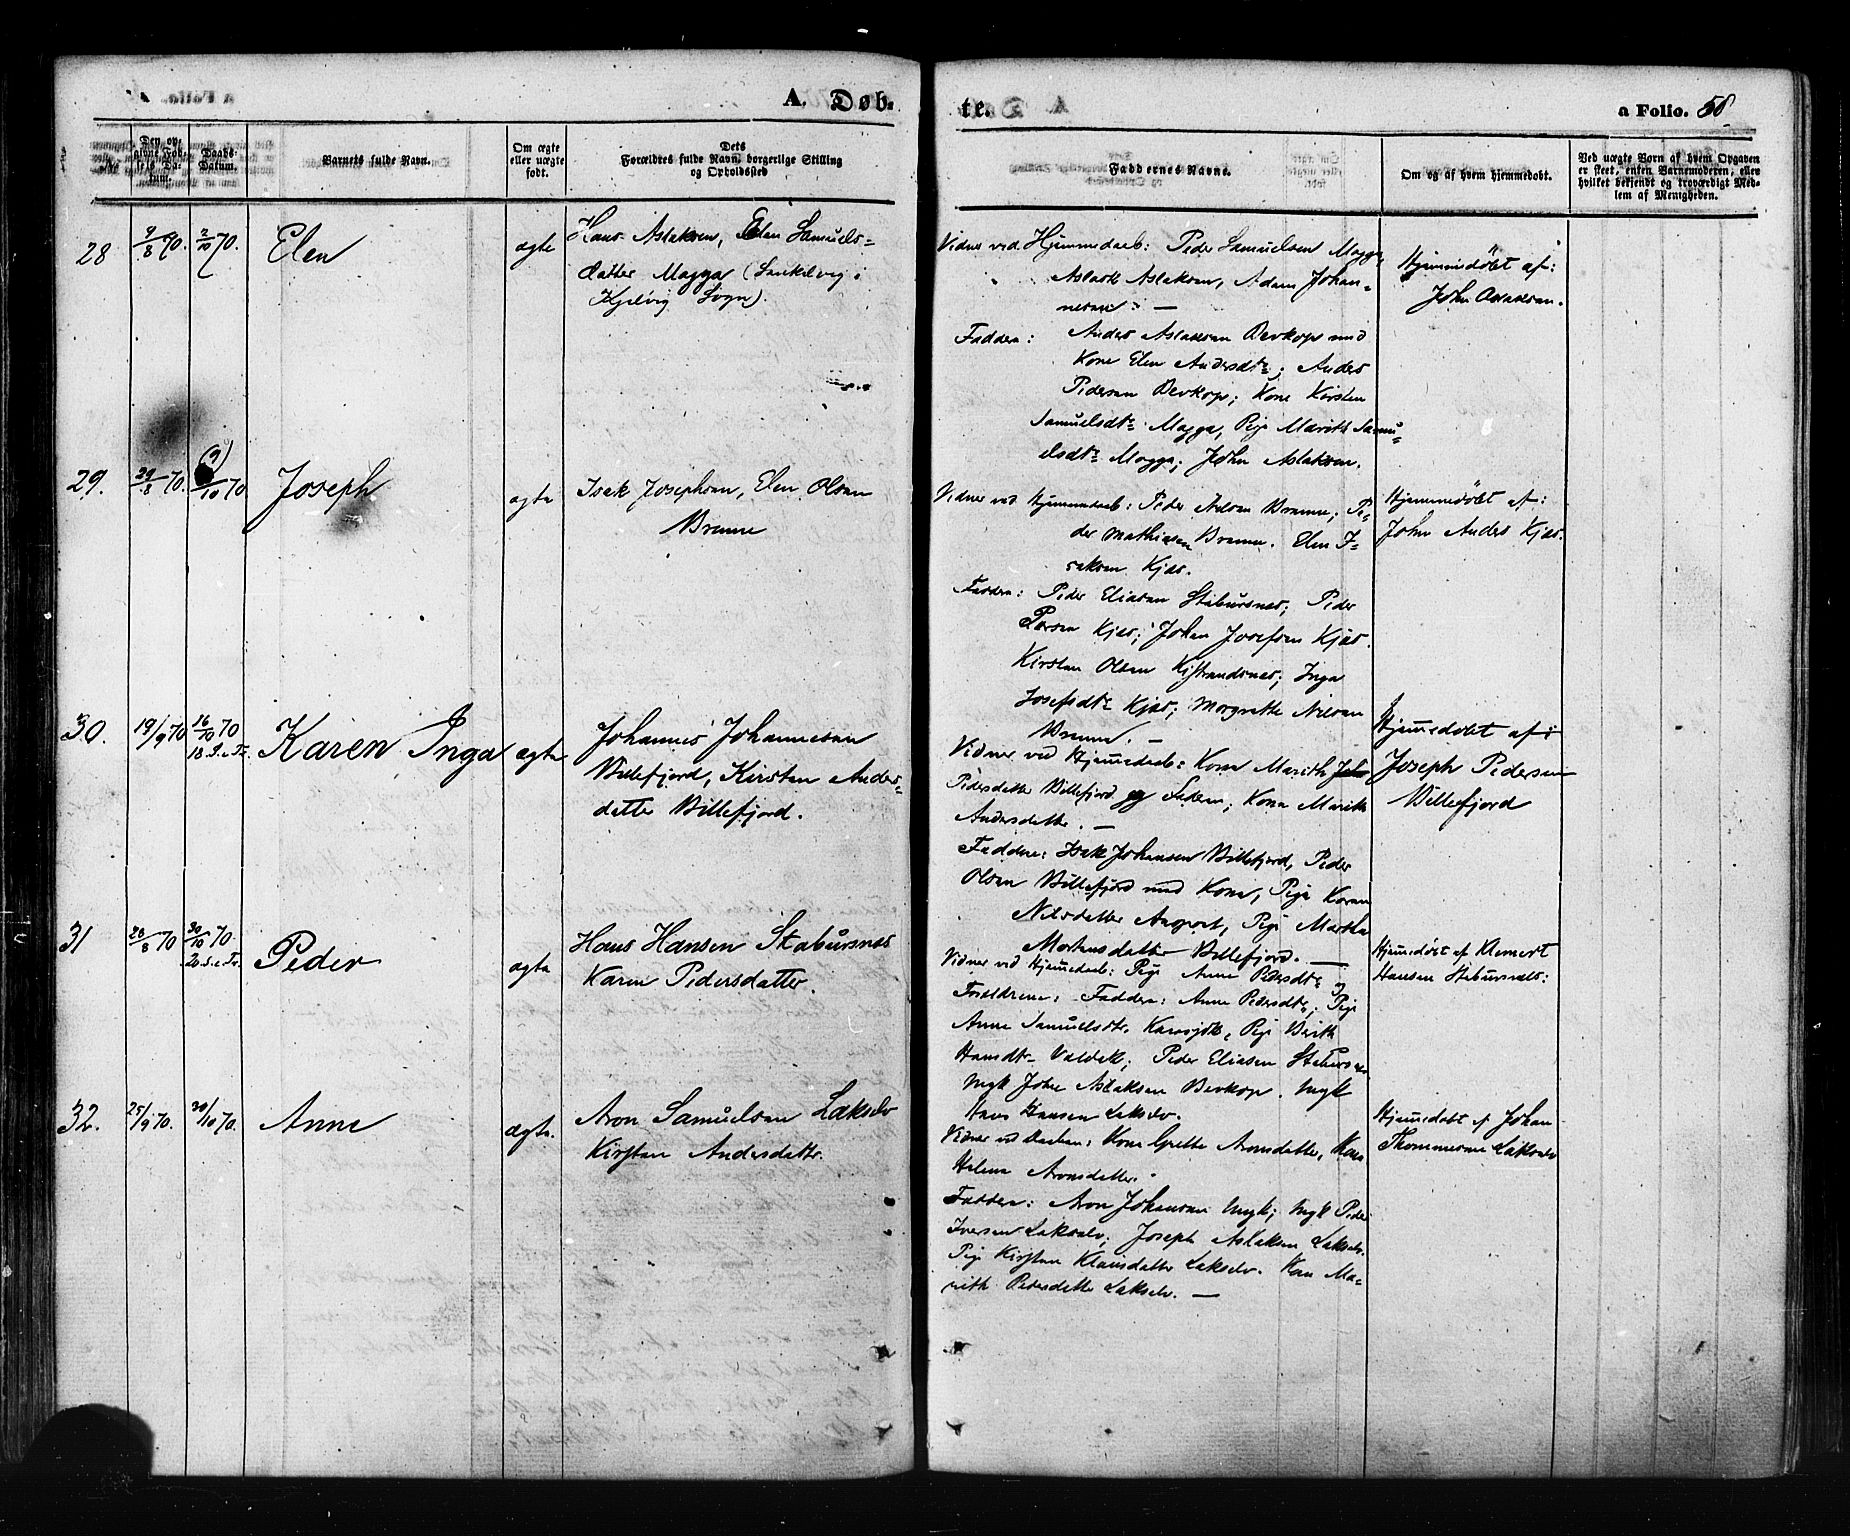 A. Døb-
te.
a Folio. 58
No
Den op-
givne Fød-
sels Da-
tum.
Daabs-
Datum.
Barnets fulde Navn.
Om ægte
eller uægte
født.
Dets
Forældres fulde Navn, borgerlige Stilling
og Opholdssted
Faddernes Navne.
Om og af hvem hjemmedøbt.
Ved uægte Børn af hvem Opgaven
er skeet, enten Barnemoderen, eller
hvilket bekjendt og troværdigt Med-
lem af Menigheden.
28
9/8 70.
2/10 70.
Elen
ægte
Hans Aslaksen, Elen Samuels=
datter Magga (
Kjelvig Sogn).
Vidner ved Hjemmedaab: Peder Samuelsen Magga,
Aslak Aslaksen, Adam Johan-
nesen. —
Faddere: Anders Aslaksen Bevkop med
Kone Elen Andersdtr; Anders
Pedersen Bevkop; Kone Kirsten
Samuelsdtr Magga, Pige Marith Samu=
elsdtr Magga; John Aslaksen.
Hjemmedöbt af:
John Aslaksen.
29.
29/8 70.
(9)
/10 70
Joseph
ægte
Isak Josephsen, Elen Olsen
Brenne
Vidner ved Hjemmedaab: Peder Nilsen Brenne, Pe-
der Mathiesen Brenne. Elen I-
saksen Kjæs.
Faddere: Peder Eliasen Stabursnæs; Peder
Larsen Kjæs; Johan Josefsen Kjæs.
Kirsten Olsen Kistrandsnæs; Inga
Josefsdtr Kjæs; Margrethe Nilsen
Brenne. —
Hjemmedöbt af:
John Anders Kjæs.
30.
19/9 70
16/10 70
18. S. e. Tr.
Karen Inga
ægte
Johannes Johannesen
Billefjord, Kirsten Anders=
datter Billefjord.
Vidner ved Hjemmedaab: Kone Marith
Pedersdatter Billefjord og Faderen; Kone Marith
Andersdatter. —
Faddere: Isak Johansen Billefjord, Peder
Olsen Billefjord med Kone, Pige Karen
Nilsdatter, Pige Martha
Mortensdatter Billefjord. —
Hjemmedöbt af:
Joseph Pedersen
Billefjord
31
28/8 70
30/10 70
20. S. e. Tr.
Peder
ægte
Hans Hansen Stabursnæs
Karen Pedersdatter.
Vidner ved Hjemmedaab: Pige Anne Pedersdtr og
Forældrene. Faddere: Anne Pedersdtr, Pige
Anne Samuelsdtr. Karasjok, Pige Berith
Hansdtr Valdak; Peder Eliasen Stabursnæs
Ungk John Aslaksen Bevkop. Ungk
Hans Hansen Lakselv.
Hjemmedöbt af Klemert
Hansen Stabursnæs:
32.
25/9 70.
30/10 70.
Anne
ægte.
Aron Samuelsen Lakselv
Kirsten Andersdattr.
Vidner ved Daaben: Kone Grethe Aronsdatter, Kone
Helene Aronsdatter.
Faddere: Aron Johansen Ungk; Ungk Peder
Iversen Lakselv; Joseph Aslaksen Lakselv.
Pige Kirsten Klausdatter Lakselv. Kone Ma-
rith Pedersdatter Lakselv. —
Hjemmedöbt af Johan
Thommesen Lakselv